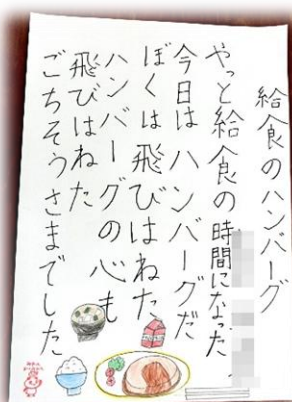 給食のハンバーグ
やっと給食の時間になった
今日はハンバーグだ
ぼくは飛びはねた
ハンバーグの心も
飛びはねた
ごちそうさまでした